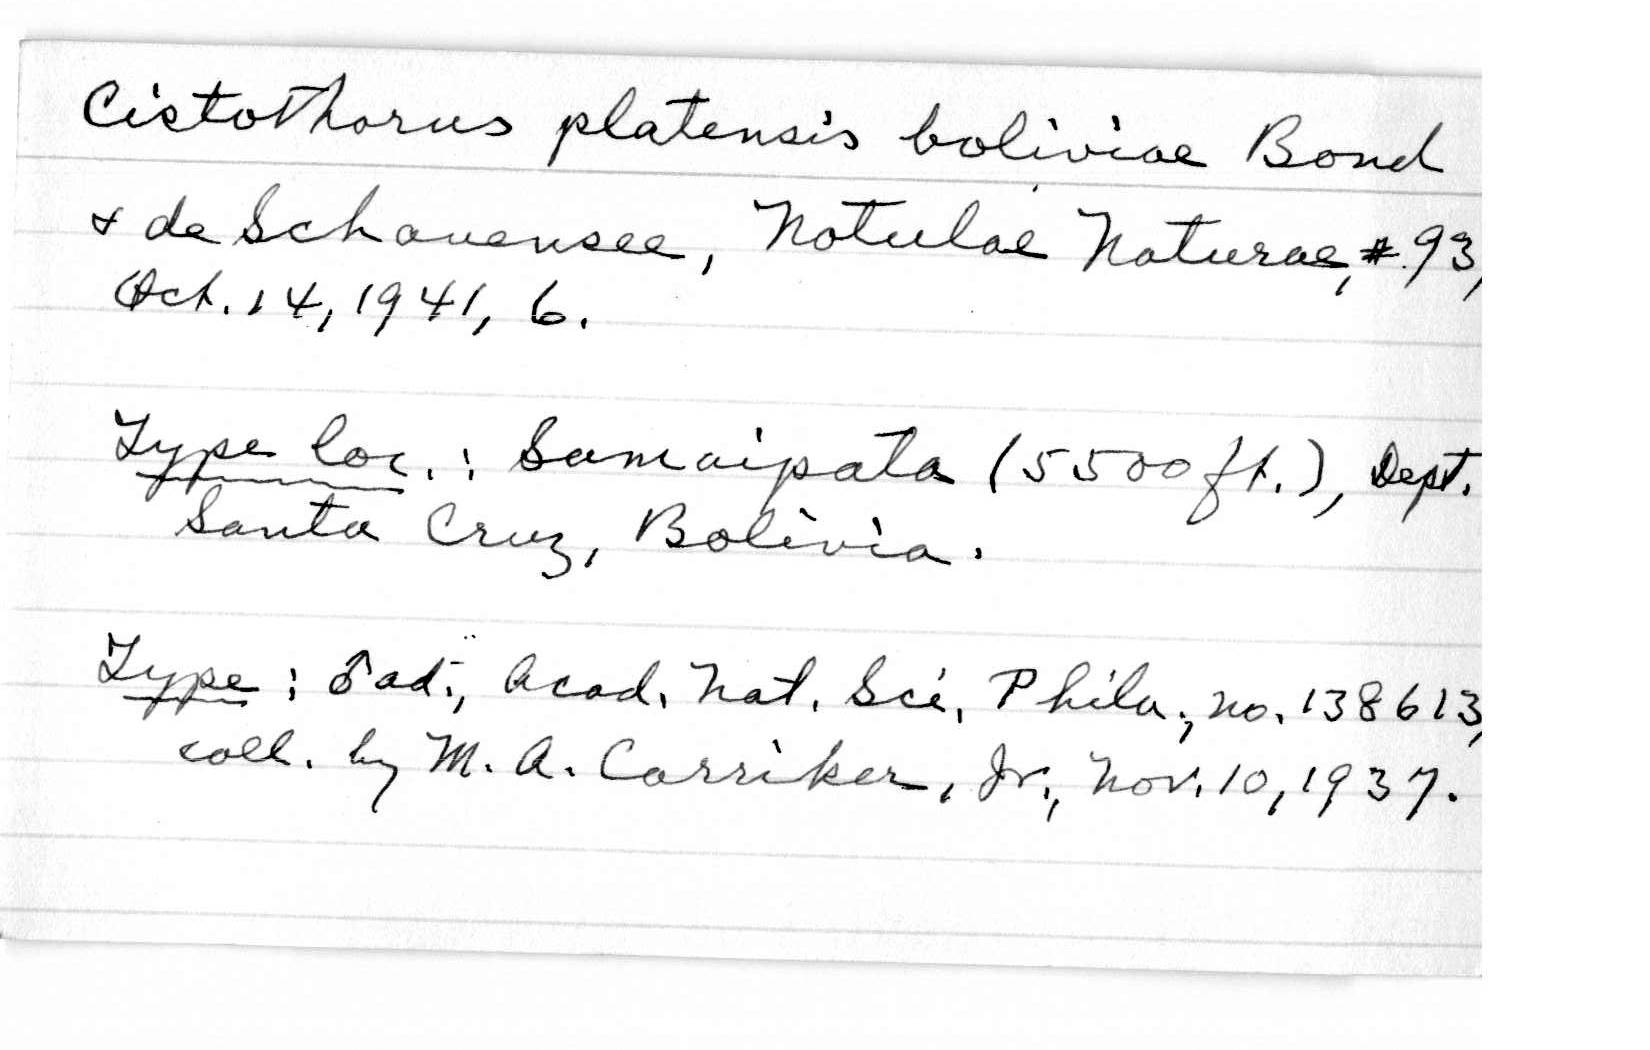 Cistothorus platensis boliviae Bond
& de Schauensee, Notulae Naturae, #93,
Oct. 14, 1941, 6.
Type loc.: Samaipata (5500 ft.), Dept.
Santa Cruz, Bolivia.
Type: ♂ ad., Acad. Nat. Sci. Phila., no. 138613,
coll. by M. A. Carriker, Jr., Nov. 10, 1937.